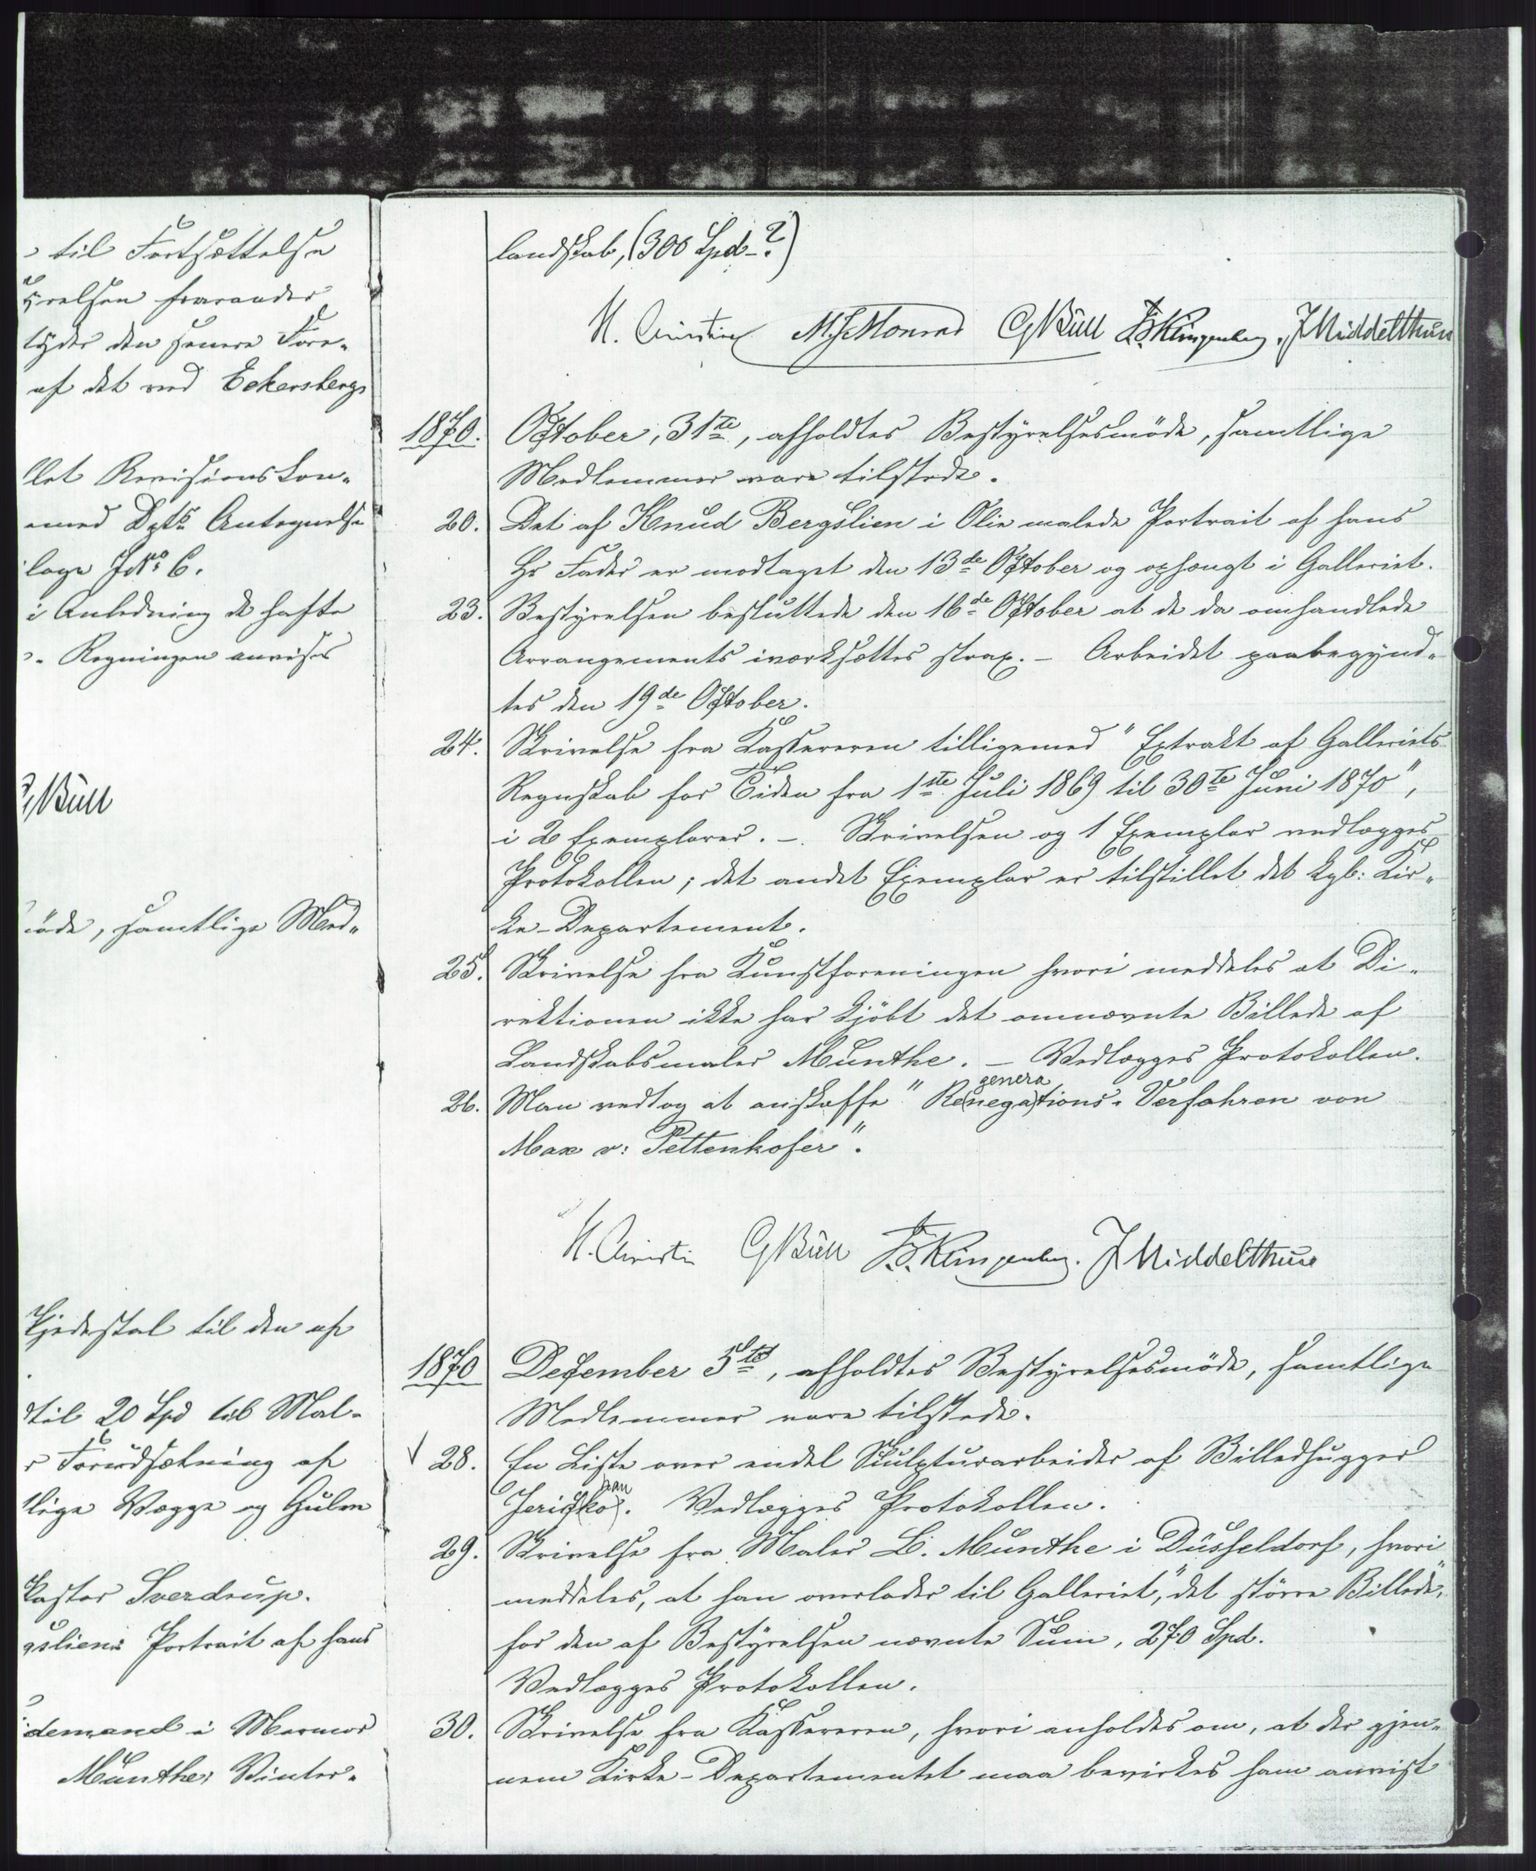 til Fortsættelse
yrelsen fraraader
tyder den senere Fore-
af det ved Eckersbergs
llet Revisionskon-
med Dpts Antegnelse
lage JNo 6.
i Anledning de hafte
Regningen anvises
GBull
møde, samtlige Med-
Pjedestal til den af
til 20 Spd til Mal-
r Forudsætning af
lige Vægge og Gulve
Pastor Sverdrup.
gsliens Portrait af hans
idemand i Marmor
Munthes Vinter-
landskab, (300 Spd-?)
H. Christie M.J. Monrad GBull B. Klingenberg. J Middelthun
1870. October, 31te, afholdtes Bestyrelsesmøde, samtlige
Medlemmer vare tilstede.
20. Det af Knud Bergslien i Olie malede Portrait af hans
Hr Fader er modtaget den 13de October og ophængt i Galleriet.
23. Bestyrelsen besluttede den 16de October at de da omhandlede
Arrangements iværksættes strax. – Arbeidet paabegynd-
tes den 19de October.
24. Skrivelse fra Kassereren tilligemed "Extrakt af Galleriets
Regnskab for Tiden fra 1ste Juli 1869 til 30te Juni 1870",
i 2 Exemplarer. – Skrivelsen og 1 Exemplar vedlægges
Protokollen; det andet Exemplar er tilstillet det kgl: Kir-
ke-Departement.
25. Skrivelse fra Kunstforeningen hvori meddeles at Di-
rektionen ikke har kjöbt det omnævnte Billede af
Landskabsmaler Munthe. – Vedlægges Protokollen.
genera
26. Man vedtog at anskaffe "Re(nega)tions-Verfahren von
Max v: Pettenkofer".
H. Christie GBull B. Klingenberg. J Middelthun
1870 December 5te, afholdtes Bestyrelsesmøde, samtlige
Medlemmer vare tilstede.
√ 28. En Liste over endel Skulpturarbeider af Billedhugger
hau
Jeri(ko). Vedlægges Protokollen.
29. Skrivelse fra Maler L. Munthe i Düsseldorf, hvori
meddeles, at han overlader til Galleriet, "det større Billede",
for den af Bestyrelsen nævnte Sum, 270 Spd.
Vedlægges Protokollen.
30. Skrivelse fra Kassereren, hvori anholdes om, at der gjen-
nem Kirke-Departementet maa bevirkes ham anvist